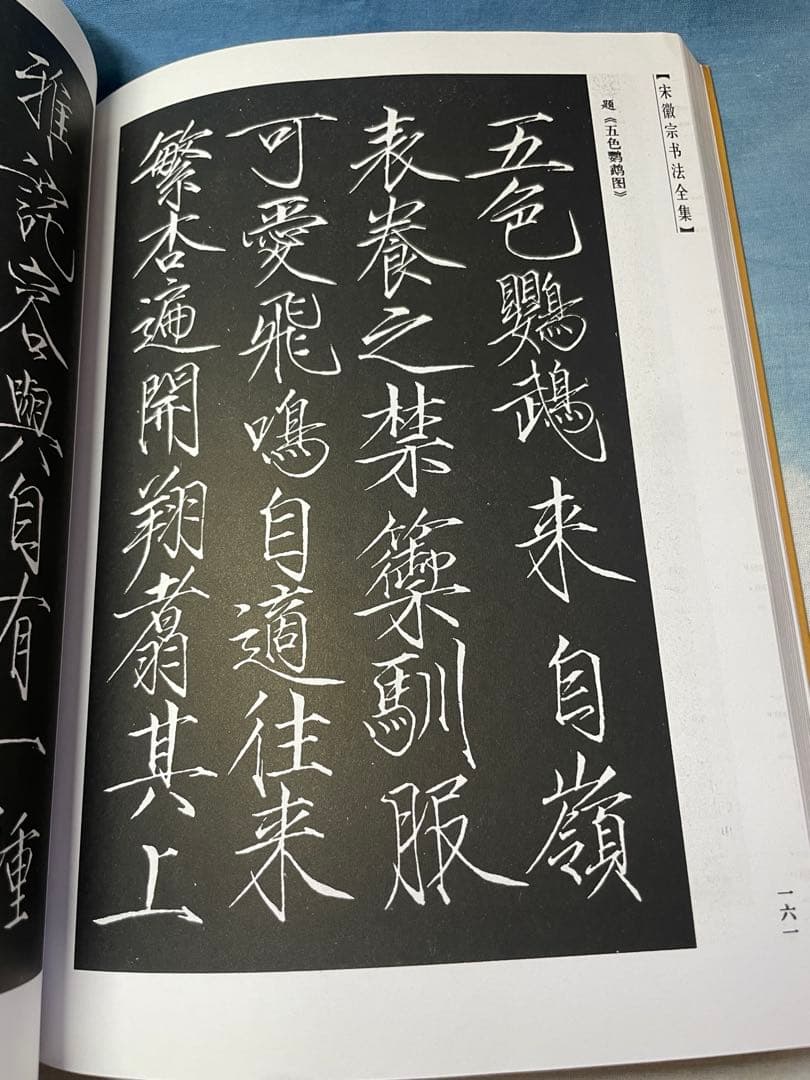 【宋徽宗书法全集】
题《五色鹦鹉图》
五色鸚鵡来自嶺
表養之禁籞馴服
可愛飛鳴自適往来
繁杏遍開翔翥其上
一六一
雅詫容與自有一種